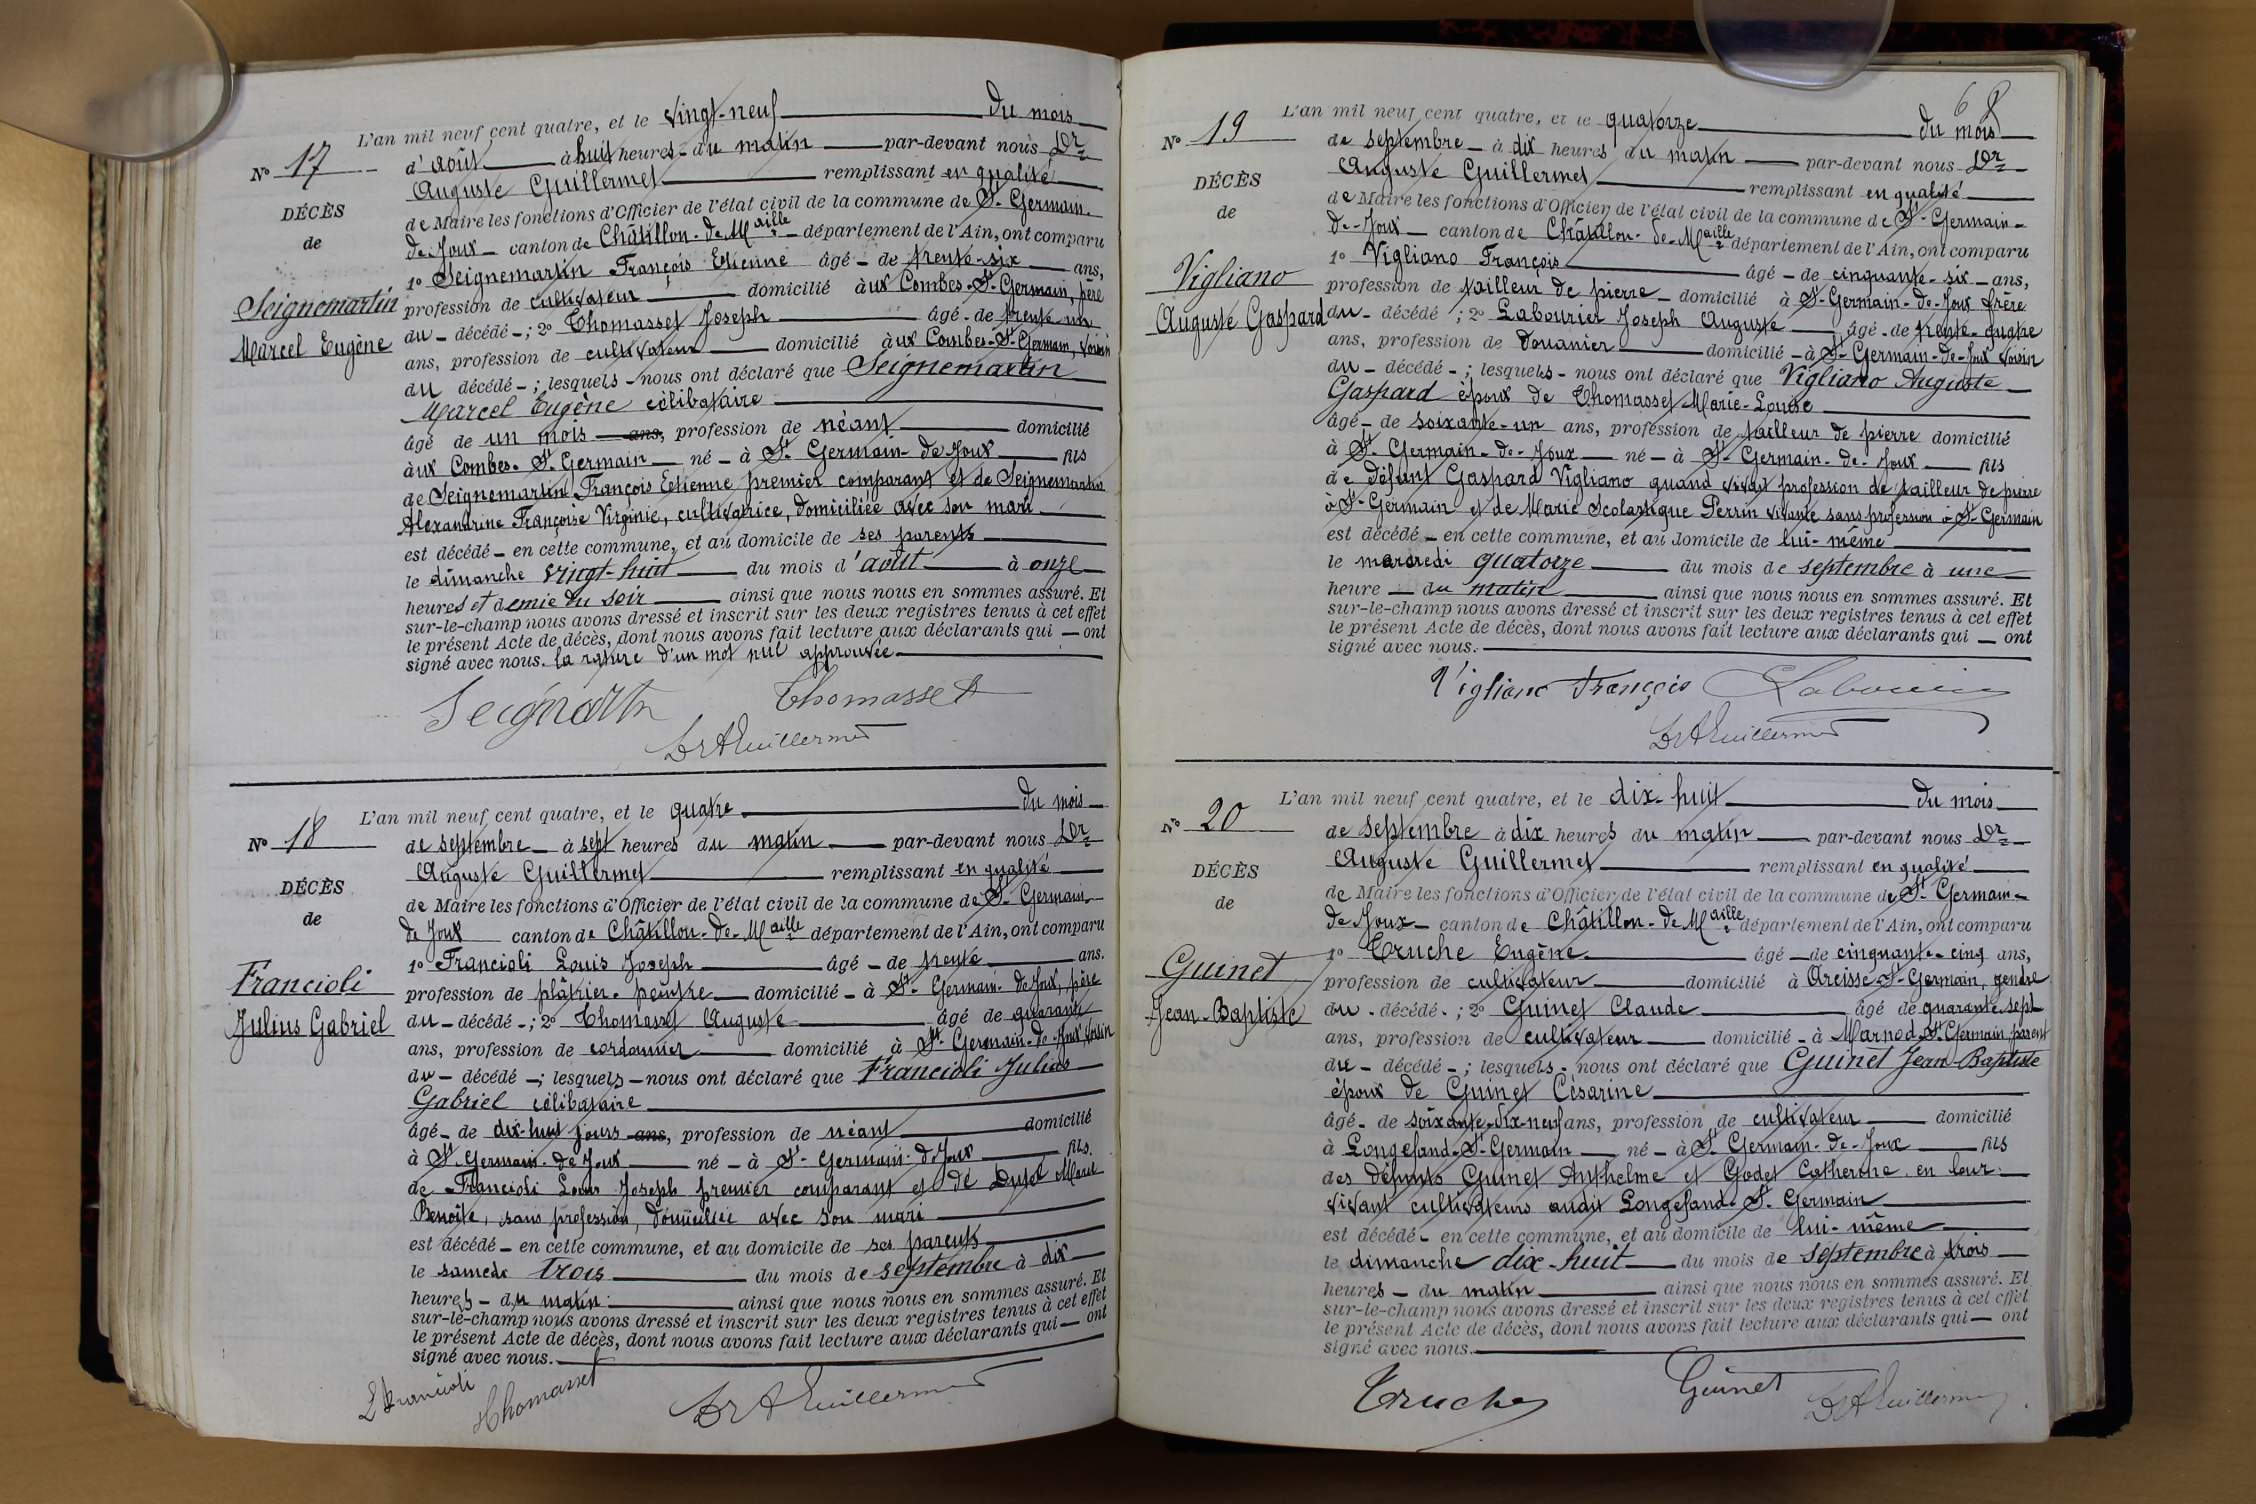 L'an mil neuf cent quatre, et le vingt-neuf du mois
N° 17
d'août à huit heures du matin par-devant nous Dr
Auguste Guillermet remplissant en qualité
DÉCÈS
de Maire les fonctions d'Officier de l'état civil de la commune de St Germain-
de
de Joux canton de Châtillon-de-Maille département de l'Ain, ont comparu
1° Seignemartin François Etienne âgé de trente-six ans,
Seignemartin
profession de cultivateur domicilié aux Combes-St Germain, père
Marcel Eugène
du décédé; 2° Thomasset Joseph âgé de trente un
ans, profession de cultivateur domicilié aux Combes-St Germain, voisin
du décédé; lesquels nous ont déclaré que Seignemartin
Marcel Eugène célibataire
âgé de un mois ans, profession de néant domicilié
aux Combes-St Germain né à St Germain-de Joux fils
de Seignemartin François Etienne premier comparant et de Seignemartin
Alexandrine Françoise Virginie, cultivatrice, domiciliée avec son mari
est décédé en cette commune, et au domicile de ses parents
le dimanche vingt-huit du mois d'août à onze
heures et demie du soir ainsi que nous nous en sommes assuré. Et
sur-le-champ nous avons dressé et inscrit sur les deux registres tenus à cet effet
le présent Acte de décès, dont nous avons fait lecture aux déclarants qui ont
signé avec nous. la rature d'un mot nul approuvée
Thomasset
Dr A Guillermet
L'an mil neuf cent quatre, et le quatre du mois
N° 18
de septembre à sept heures du matin par-devant nous Dr
Auguste Guillermet remplissant en qualité
DÉCÈS
de Maire les fonctions d'Officier de l'état civil de la commune de St Germain-
de
de Joux canton de Châtillon-de-Maille département de l'Ain, ont comparu
1° Francioli Louis Joseph âgé de trente ans.
Francioli
profession de plâtrier-peintre domicilié à St Germain-de Joux, père
Julius Gabriel
du décédé; 2° Thomasset Auguste âgé de quarante
ans, profession de cordonnier domicilié à St Germain-de-Joux voisin
du décédé; lesquels nous ont déclaré que Francioli Julius
Gabriel célibataire
âgé de dix-huit jours ans, profession de néant domicilié
à St Germain-de Joux né à St Germain-de Joux fils.
de Francioli Louis Joseph premier comparant et de Marie
Benoîte, sans profession, domiciliée avec son mari
est décédé en cette commune, et au domicile de ses parents
le samedi trois du mois de septembre à dix
heures du matin ainsi que nous nous en sommes assuré. Et
sur-le-champ nous avons dressé et inscrit sur les deux registres tenus à cet effet
le présent Acte de décès, dont nous avons fait lecture aux déclarants qui ont
signé avec nous.
L Francioli
Thomasset
Dr A Guillermet
68
L'an mil neuf cent quatre, et le quatorze du mois
N° 19
de septembre à dix heures du matin par-devant nous Dr
Auguste Guillermet remplissant en qualité
DÉCÈS
de Maire les fonctions d'Officier de l'état civil de la commune de St Germain-
de
de-Joux canton de Châtillon-de-Maille département de l'Ain, ont comparu
1° Vigliano François âgé de cinquante-six ans,
Vigliano
profession de tailleur de pierre domicilié à St Germain-de-Joux frère
Auguste Gaspard
du décédé; 2° Labourier Joseph Auguste âgé de trente-quatre
ans, profession de douanier domicilié à St Germain-de-Joux voisin
du décédé; lesquels nous ont déclaré que Vigliano Auguste
Gaspard époux de Thomasset Marie-Louise
âgé de soixante-un ans, profession de tailleur de pierre domicilié
à St Germain-de-Joux né à St Germain-de-Joux fils
de défunt Gaspard Vigliano quand vivait profession de tailleur de pierre
à St Germain et de Marie Scolastique Perrin vivante sans profession à St Germain
est décédé en cette commune, et au domicile de lui-même
le mercredi quatorze du mois de septembre à une
heure du matin ainsi que nous nous en sommes assuré. Et
sur-le-champ nous avons dressé et inscrit sur les deux registres tenus à cet effet
le présent Acte de décès, dont nous avons fait lecture aux déclarants qui ont
signé avec nous.
Vigliano François
Dr A Guillermet
L'an mil neuf cent quatre, et le dix-huit du mois
N° 20
de septembre à dix heures du matin par-devant nous Dr
Auguste Guillermet remplissant en qualité
DÉCÈS
de Maire les fonctions d'Officier de l'état civil de la commune de St Germain-
de
de Joux canton de Châtillon-de-Maille département de l'Ain, ont comparu
1° Truche Eugène âgé de cinquante-cinq ans,
Guinet
profession de cultivateur domicilié à Areisse-St Germain, gendre
Jean-Baptiste
du décédé; 2° Guinet Claude âgé de quarante-sept
ans, profession de cultivateur domicilié à Marnod-St Germain parent
du décédé; lesquels nous ont déclaré que Guinet Jean-Baptiste
époux de Guinet Césarine
âgé de soixante-dix-neuf ans, profession de cultivateur domicilié
à Longefand-St Germain né à St Germain-de-Joux fils
des défunts Guinet Anthelme et Godet Catherine en leur
vivant cultivateurs audit Longefand-St Germain
est décédé en cette commune, et au domicile de lui-même
le dimanche dix-huit du mois de septembre à trois
heures du matin ainsi que nous nous en sommes assuré. Et
sur-le-champ nous avons dressé et inscrit sur les deux registres tenus à cet effet
le présent Acte de décès, dont nous avons fait lecture aux déclarants qui ont
signé avec nous.
Truche
Guinet
Dr A Guillermet